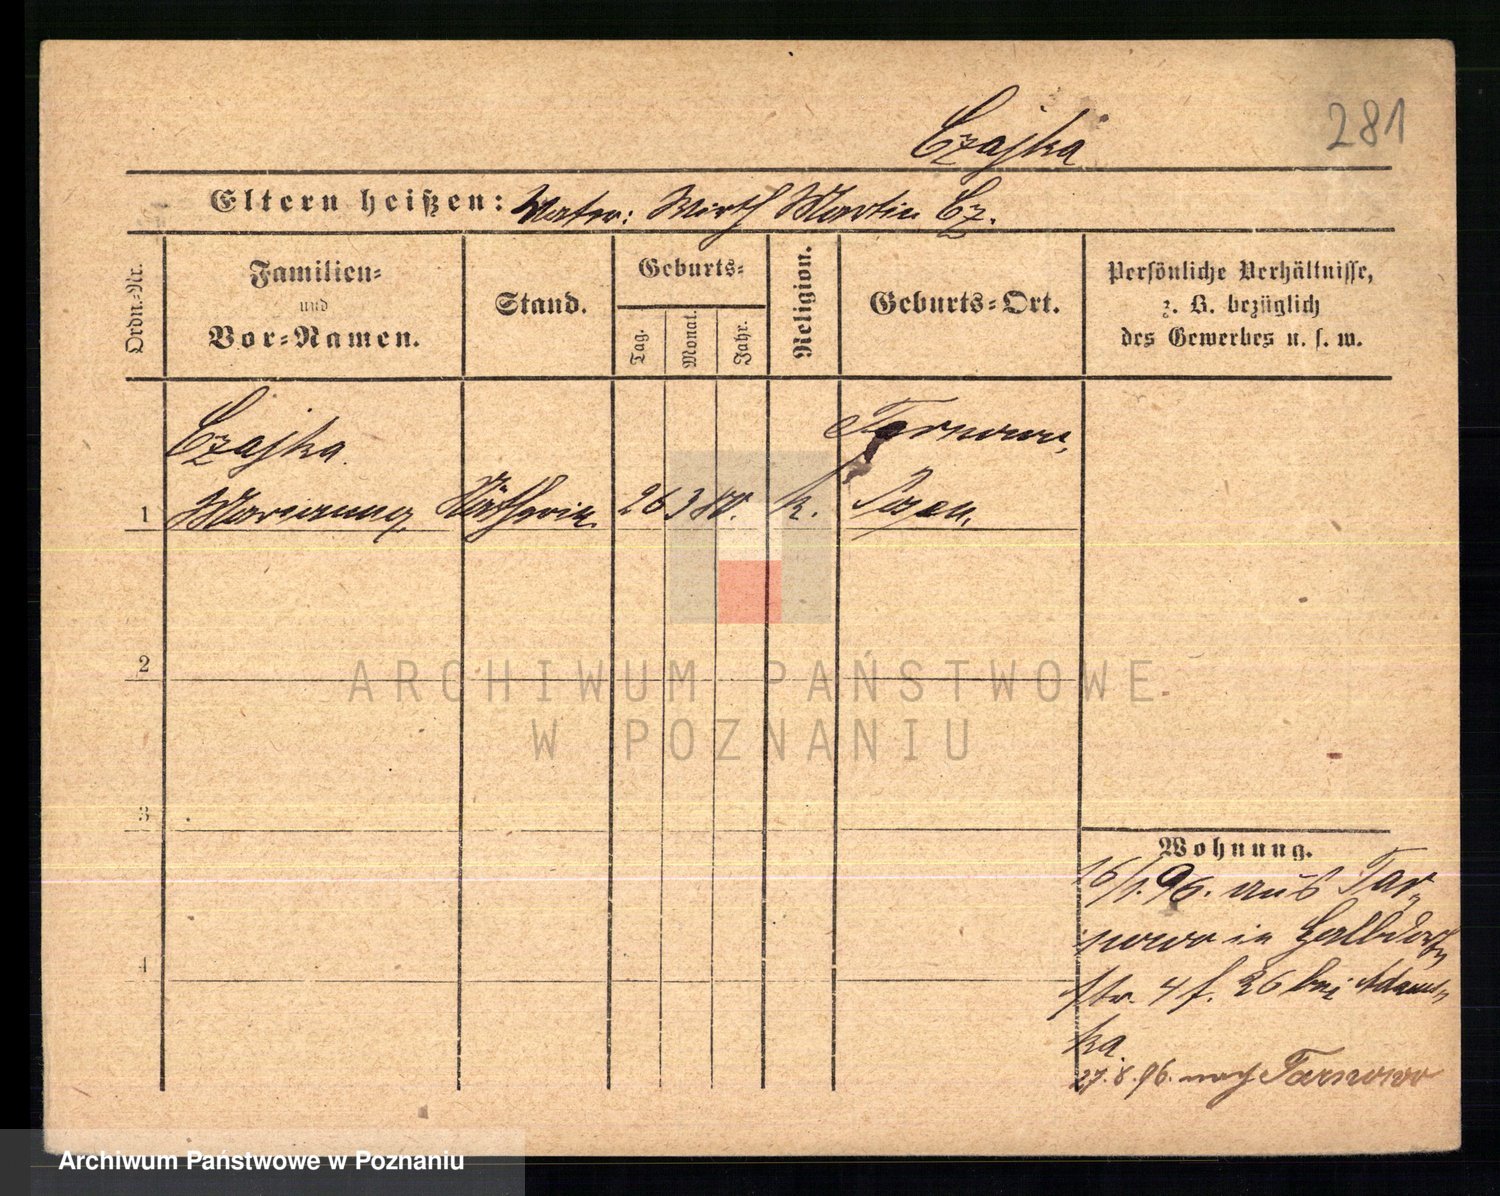 281
Czajka
Eltern heißen: Vater: Wirth Martin Cz.
Ordn.-Nr.
Familien-
und
Vor-Namen.
Stand.
Geburts-
Tag.
Monat.
Jahr.
Religion.
Geburts-Ort.
Persönliche Verhältnisse,
z. B. bezüglich
des Gewerbes u. s. w.
Czajka
Tarnowo,
1 Marianna Nätherin 26 3 80. k. Posen.
2
3
4
Wohnung.
16/1. 96. aus Tar-
nowo in Halbdorf-
str. 4 f. 26 bei Adams-
ka.
27.8.96. nach Tarnowo
ARCHIWUM PAŃSTWOWE
W POZNANIU
Archiwum Państwowe w Poznaniu